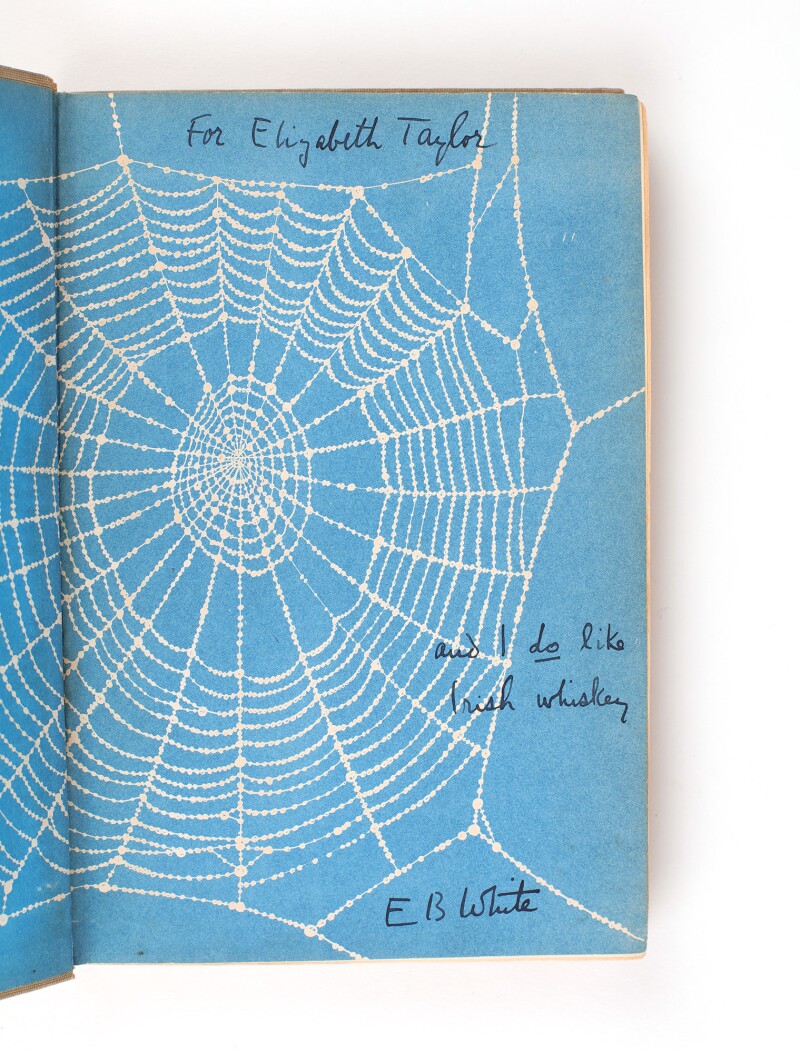 For Elizabeth Taylor
and I do like
Irish whiskey
E B White